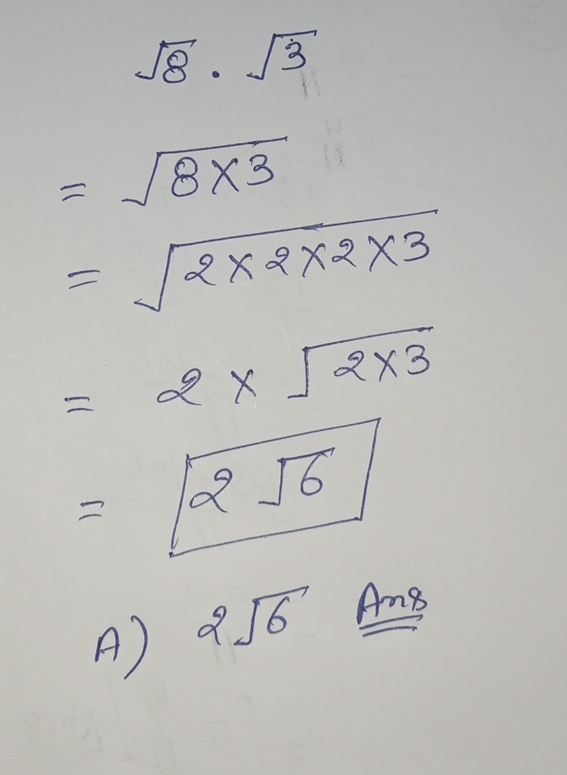 √8 . √3
= √8×3
= √2×2×2×3
= 2 × √2×3
= 2√6
A) 2√6 Ans